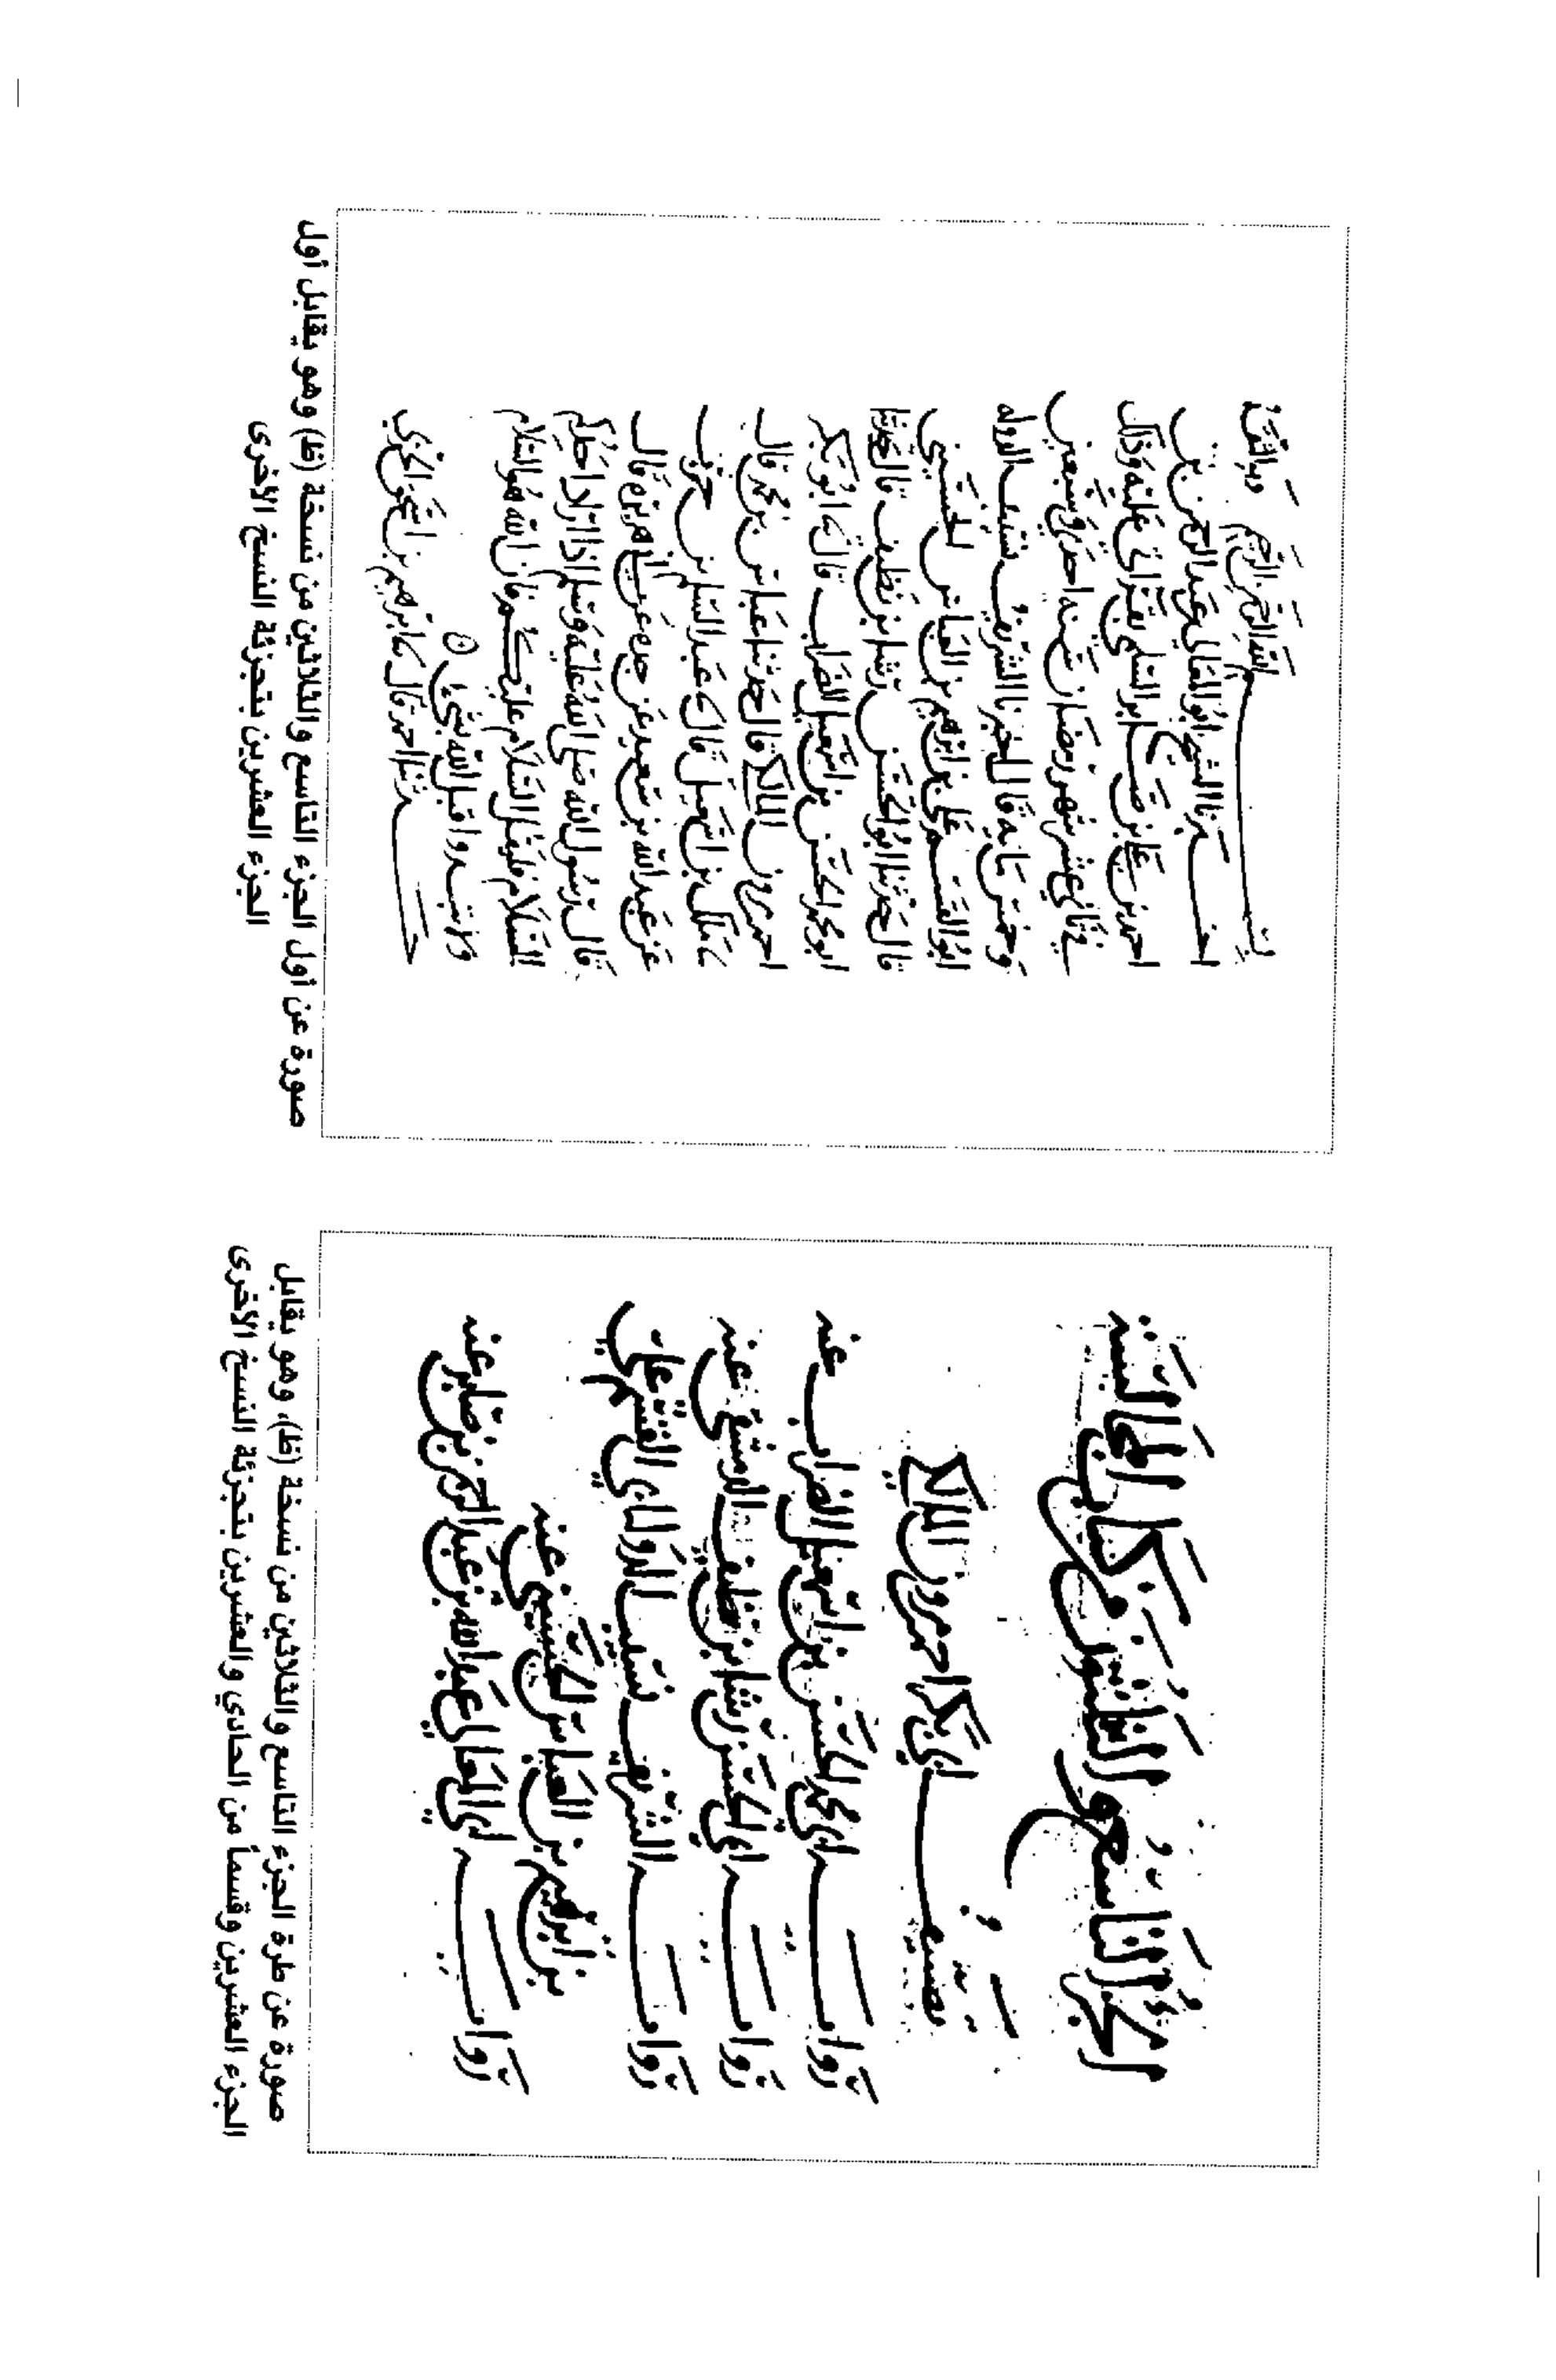 الجزء التاسع والثلثون من كتاب المجالسة
تصنيف ابي بكر احمد بن مروان المالكي
رواية ابي محمد الحسن بن اسمعيل الضراب عنه
رواية ابي الحسن رشا بن نظيف الدمشقي عنه
رواية الشريف نسيب الدولة ابي القسم علي
بن ابرهيم بن العباس الحسيني عنه
رواية ابي المعالي عبد الله بن عبد الرحمن بن صابر عنه
صورة عن طرة الجزء التاسع والثلاثين من نسخة (ظ)، وهو يقابل
الجزء العشرين وقسماً من الحادي والعشرين بتجزئة النسخ الأخرى
بسم الله الرحمن الرحيم وبه الثقة
اخبرنا الشيخ ابو المعالي عبد الله بن عبد الرحمن بن
احمد بن علي بن صابر السلمي بقراتي عليه وذلك
في ثاني عشر شهر رمضان سنة احدى وسبعين
وخمس ماية قال اخبرنا الشريف نسيب الدولة
ابو القسم علي بن ابرهيم بن العباس الحسيني
قال حدثنا ابو الحسن رشا بن نظيف قال حدثنا
ابو محمد الحسن بن اسمعيل الضراب قال نا ابو بكر
احمد بن مروان المالكي قال حدثنا عباس بن محمد قال
نا ملك بن اسمعيل قال نا عبد السلم بن حرب
عن عبد الله بن سعيد عن جده عن ابي هريرة قال
قال رسول الله صلى الله عليه وسلم اذا اراد احدكم
السلام فليقل السلام عليكم فان الله هو السلام
ولا تبدوا قبل الله بشيء
حدثنا احمد قال نا ابرهيم بن اسحق الحربي
صورة عن أول الجزء التاسع والثلاثين من نسخة (ظ) وهو يقابل أول
الجزء العشرين بتجزئة النسخ الأخرى